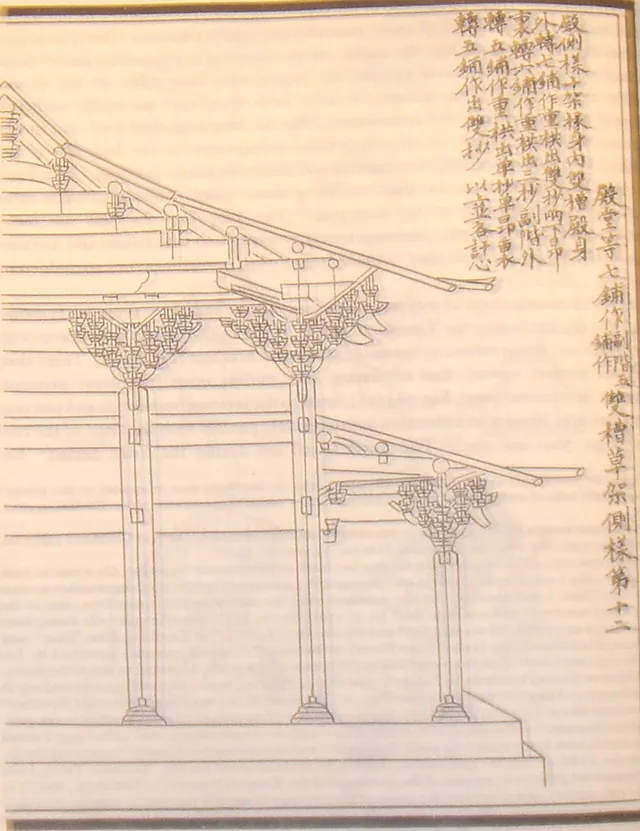 殿堂等七鋪作副階五鋪作雙槽草架側樣第十二
殿側樣十架椽身內雙槽殿身
外轉七鋪作重栱出雙抄兩下昂
裏轉六鋪作重栱出三抄副階外
轉五鋪作重栱出單抄單昂裏
轉五鋪作出雙抄 以並各計心